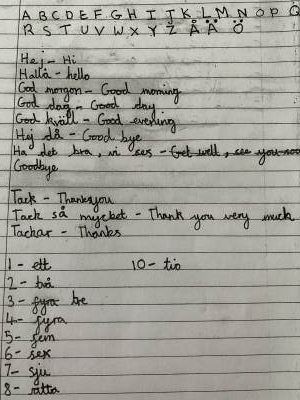 A B C D E F G H I J K L M N O P Q
R S T U V W X Y Z Å Ä Ö
Hej - Hi
Hallå - hello
God morgon - Good morning
God dag - Good day
God kväll - Good evening
Hej då - Good bye
Ha det bra, vi ses - Get well, see you soon
Goodbye
Tack - Thankyou
Tack så mycket - Thank you very much
Tackar - Thanks
1 - ett 10 - tio
2 - två
3 - fyra tre
4 - fyra
5 - fem
6 - sex
7 - sju
8 - åtta